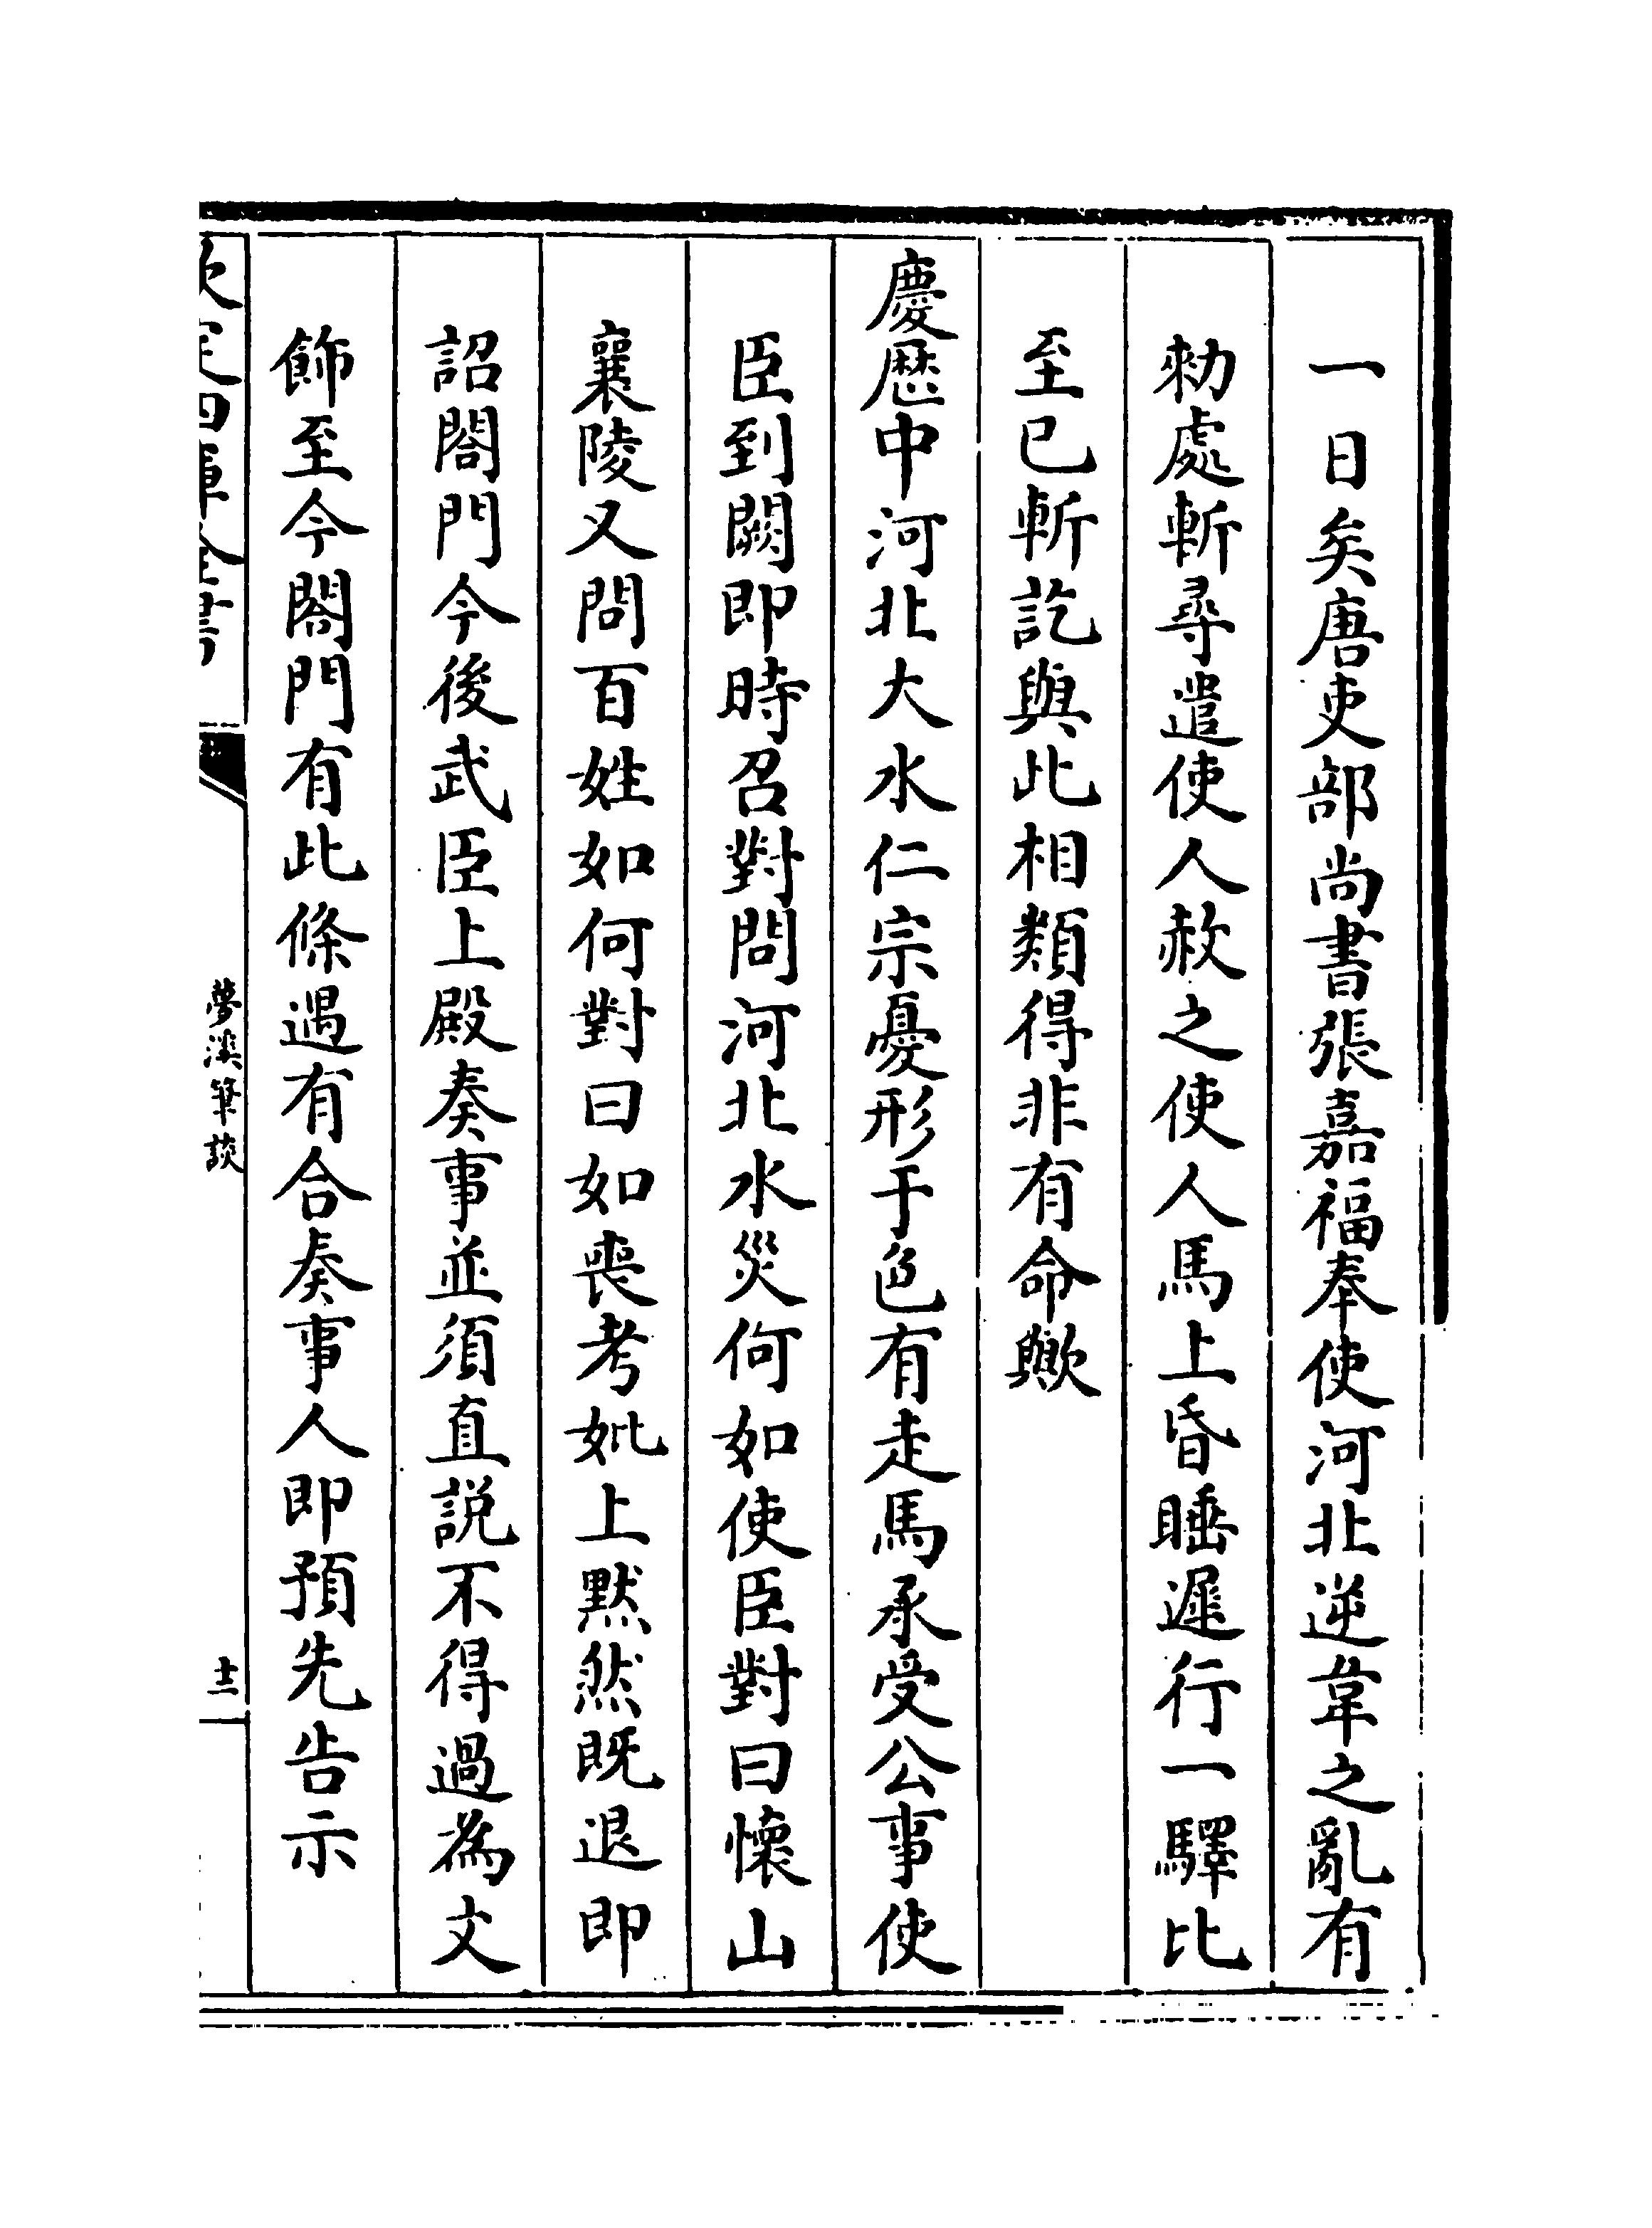 一日矣唐吏部尚書張嘉福奉使河北逆韋之亂有
勑處斬尋遣使人赦之使人馬上昏睡遲行一驛比
至已斬訖與此相類得非有命歟
慶歴中河北大水仁宗憂形于色有走馬承受公事使
臣到闕即時召對問河北水災何如使臣對曰懷山
襄陵又問百姓如何對曰如喪考妣上黙然既退即
詔閤門今後武臣上殿奏事並須直説不得過為文
飾至今閤門有此條遇有合奏事人即預先告示
欽定四庫全書
夢溪筆談
十二